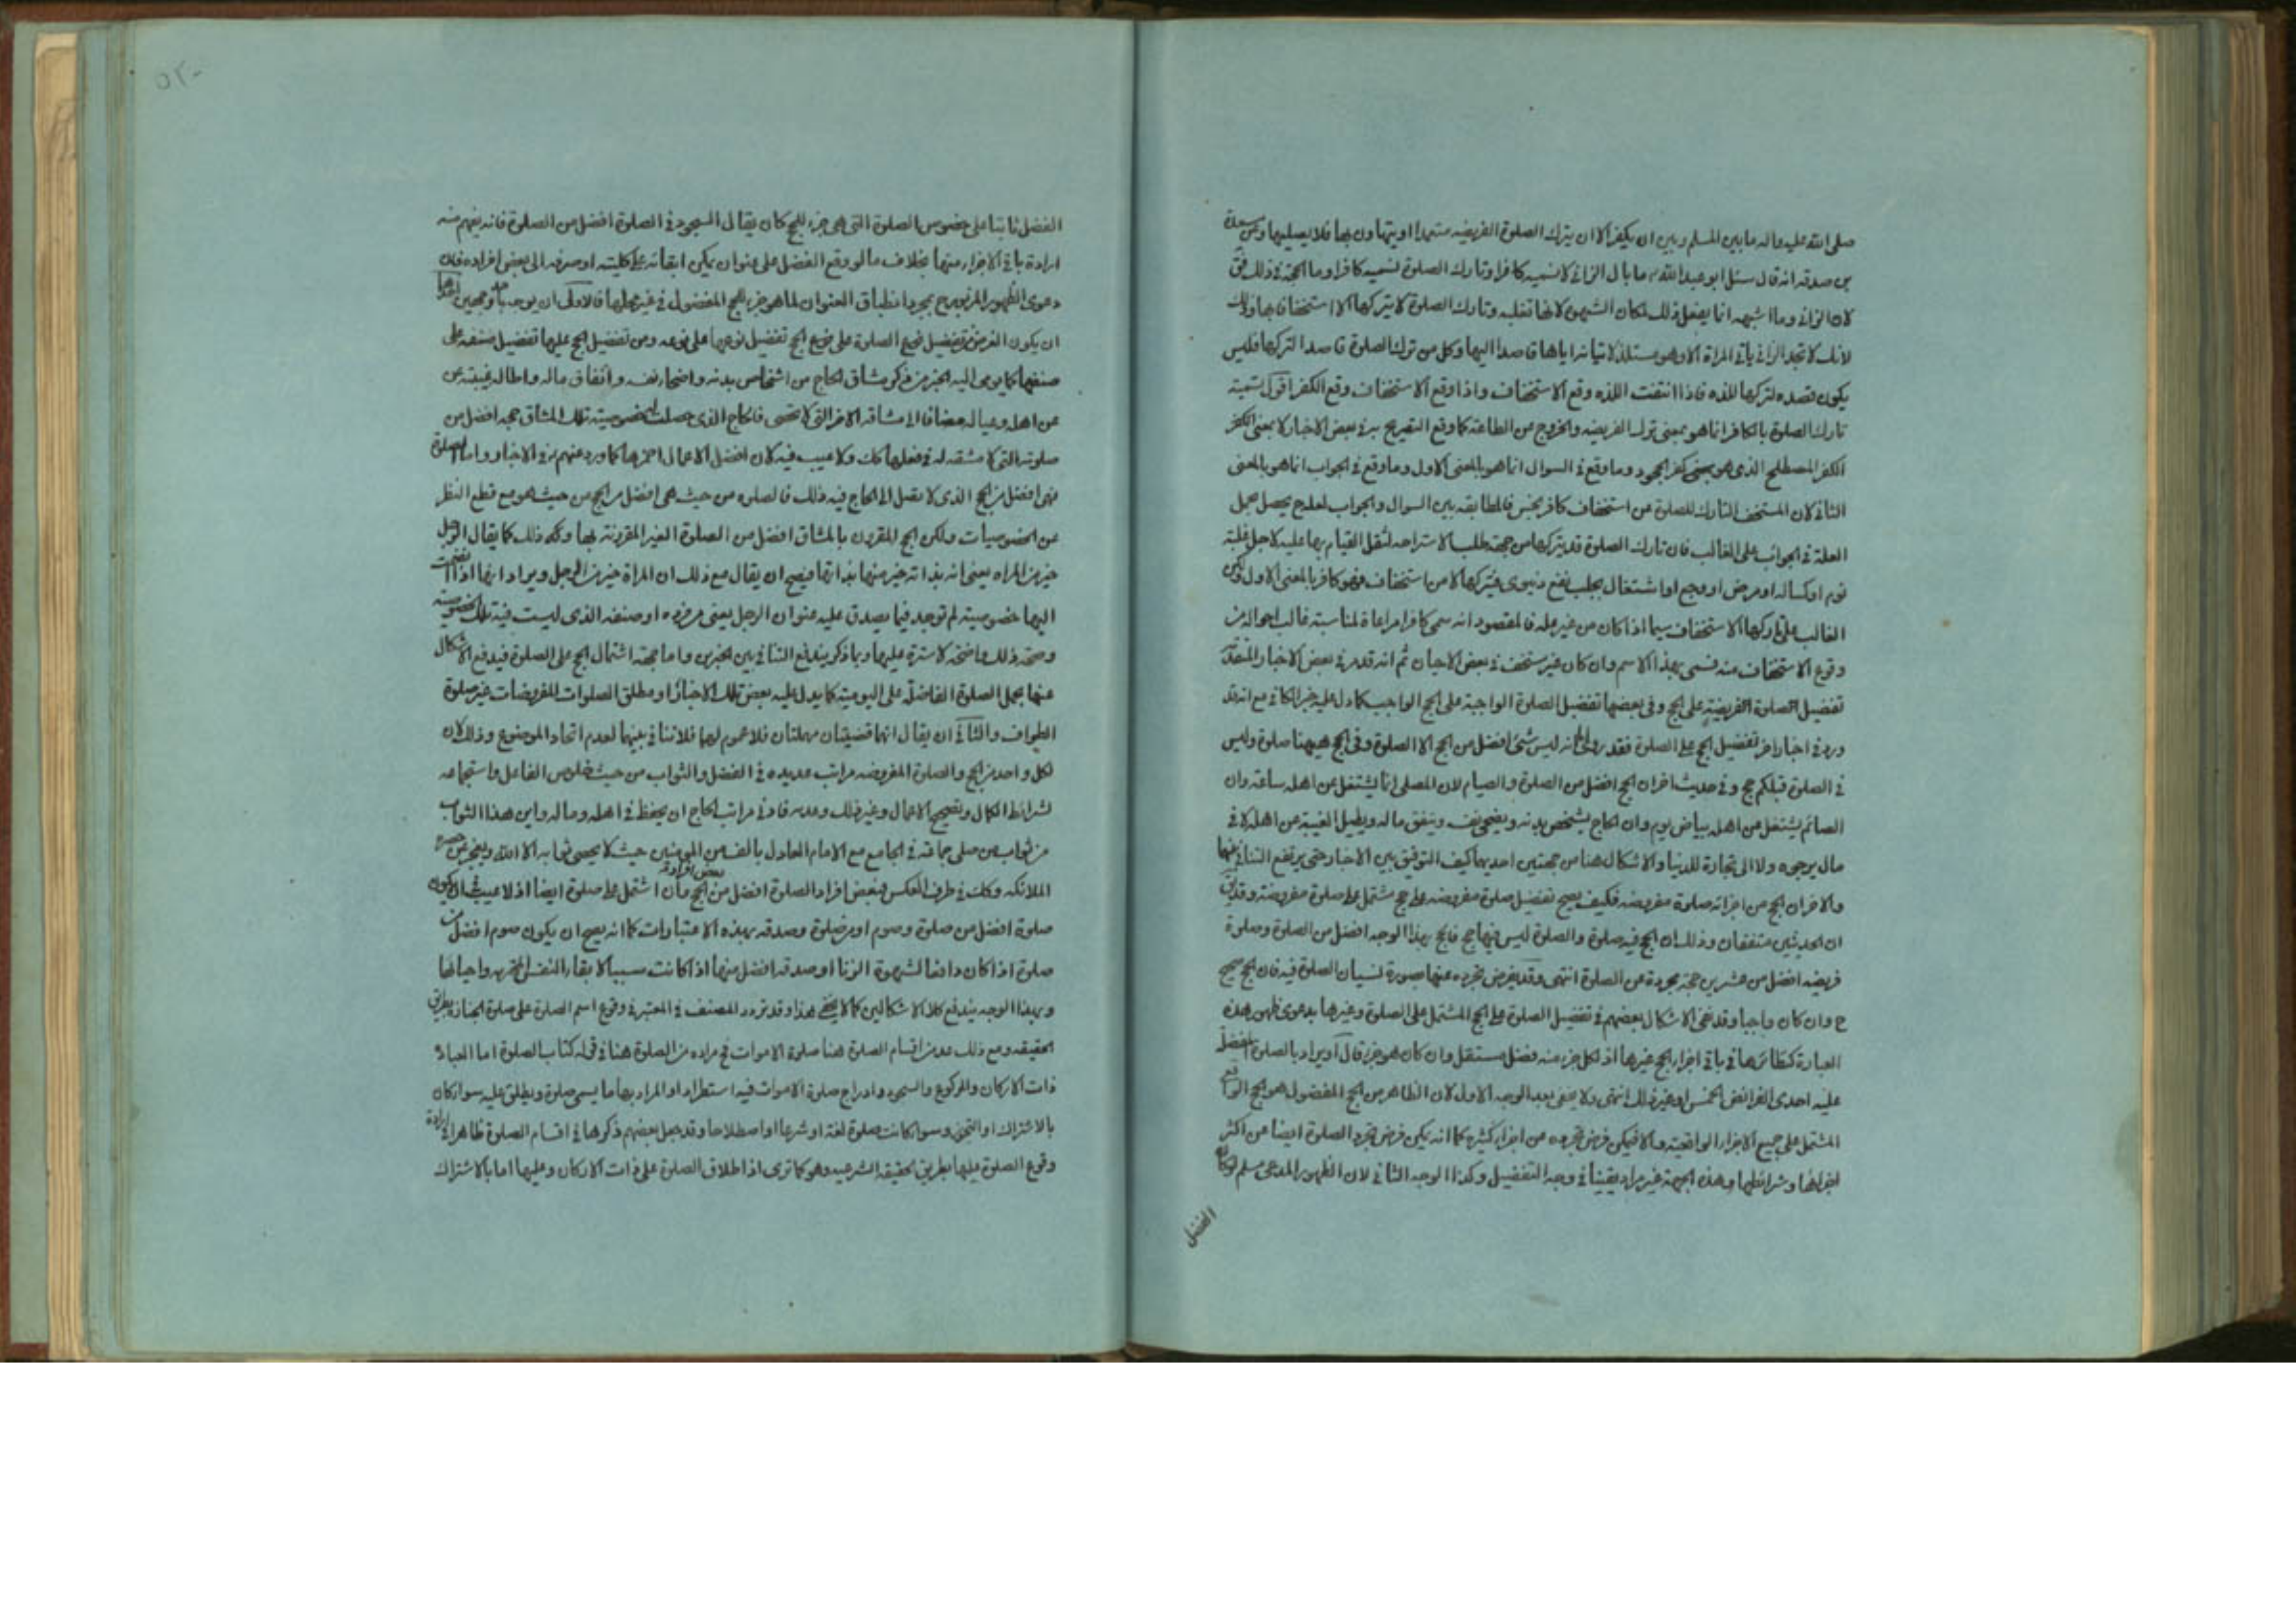 صلى الله عليه واله ما بين المسلم وبين ان يكفر الا ان يترك الصلوة الفريضه متعمدا او يتهاون بها فلا يصليها وعن مسعدة
بن صدقه انه قال سئل ابو عبد الله ع ما بال الزانى لا نسميه كافرا وتارك الصلوة نسميه كافرا وما الحجة فى ذلك فق
لان الزانى وما اشبهه انما يفعل ذلك لمكان الشهوة لانها تغلبه وتارك الصلوة لا يتركها الا استخفافا بها وذلك
لانك لا تجد الزانى ياتى المراة الا وهو مستلذ لاتيانه اياها قاصدا اليها وكل من ترك الصلوة قاصدا لتركها فليس
يكون قصده لتركها اللذه فاذا انتفت اللذه وقع الاستخفاف واذا وقع الاستخفاف وقع الكفر اقول تسمية
تارك الصلوة بالكافر انما هو بمعنى ترك الفريضه والخروج عن الطاعة كما وقع التصريح به فى بعض الاخبار لا بمعنى الكفر
الكفر المصطلح الذى هو بمعنى كفر الجحود وما وقع فى السوال انما هو بالمعنى الاول وما وقع فى الجواب انما هو بالمعنى
الثانى لان المستخف التارك للصلوة عن استخفاف كافر نجس فالمطابقه بين السوال والجواب يحصل بحمل
العلة فى الجواب على الغالب فان تارك الصلوة قد يتركها من جهة طلب الاستراحه لثقل القيام بها عليه لاجل غلبة
نوم او كسالة او مرض او وجع او اشتغال بجلب نفع دنيوى فيتركها لا من استخفاف فهو كافر بالمعنى الاول ولكن
الغالب على تاركها الاستخفاف سيما اذا كان من غير عله فالمقصود انه سمى كافرا مراعاة لمناسبة غالب احواله من
وقوع الاستخفاف منه فسمى بهذا الاسم وان كان غير مستخف فى بعض الاحيان ثم انه قد مر فى بعض الاخبار المتقدمة
تفضيل الصلوة الفريضة على الحج وفى بعضها تفضيل الصلوة الواجبة على الحج الواجب كما دل عليه خبر الكافى مع انه قد
ورد فى اخبار اخر تفضيل الحج على الصلوة فقد روى انه ليس شئ افضل من الحج الا الصلوة وفى الحج ههنا صلوة وليس
فى الصلوة قبلكم حج وفى حديث اخر ان الحج افضل من الصلوة والصيام لان المصلى انما يشتغل عن اهله ساعة وان
الصائم يشتغل عن اهله بياض يوم وان الحاج يشخص بدنه ويضحى نفسه وينفق ماله ويطيل الغيبة عن اهله لا فى
مال يرجوه ولا الى تجارة للدنيا والاشكال هنا من جهتين احديهما كيف التوفيق بين الاخبار حتى يرتفع التنافى بينهما
والاخر ان الحج من اجزائه صلوة مفروضه فكيف يصح تفضيل صلوة مفروضه على حج مشتمل على صلوة مفروضة وقد يق
ان الحديثين متفقان وذلك ان الحج فيه صلوة والصلوة ليس فيها حج فالحج بهذا الوجه افضل من الصلوة وصلوة
فريضه افضل من عشرين حجة مجردة عن الصلوة انتهى وقد يفرض تجرده عنها بصورة نسيان الصلوة فيه فان الحج صحيح
ح وان كان واجبا وقد نفى الاشكال بعضهم فى تفضيل الصلوة على الحج المشتمل على الصلوة وغيرها بدعوى ظهور هذه
العبارة كنظائرها فى باقى اجزاء الحج غيرها اذ لكل جزء منه فضل مستقل وان كان هو جزءا قال او يراد بالصلوة المفضل
عليه احدى الفرائض الخمس او غير ذلك انتهى ولا يخفى بعد الوجه الاول لان الظاهر من الحج المفضول هو الحج الواقع
المشتمل على جميع الاجزاء الواقعية والا فيمكن فرض تجرده عن اجزاء كثيره كما انه يمكن فرض تجرد الصلوة ايضا عن اكثر
اجزائها وشرائطها وهذه الجهة غير مراد يقينا فى وجه التفضيل وكذا الوجه الثانى لان الظهور المدعى مسلم لو كان
الفضل
٥٢٠
الفضل ثابتا على خصوص الصلوة التى هى جزء للحج كان يقال السجود فى الصلوة افضل من الصلوة فانه يفهم منه
ارادة باقى الاجزاء منها بخلاف ما لو وقع الفضل على عنوان يمكن ابقائه على كليته او صرفه الى بعض افراده فان
دعوى الظهور المزبور بمجرد انطباق العنوان لما هو جزء للحج المفضول فى غير محلها فالاولى ان يوجه بوجهين احدهما
ان يكون الغرض من تفضيل نوع الصلوة على نوع الحج تفضيل نوعها على نوعه ومن تفضيل الحج عليها تفضيل صنفه على
صنفها كما يومى اليه الخبر من ذكر مشاق الحاج من اشخاص بدنه واضحاء نفسه وانفاق ماله واطاله غيبته عن
عن اهله وعياله مضافا الى مشاقه الاخر التى لا تحصى فالحاج الذى حصلت له خصوصية تلك المشاق حجه افضل من
صلوته التى لا مشقه له فى فعلها كك ولا عيب فيه لان افضل الاعمال احمزها كما ورد عنهم فى الاخبار واما الصلوة
فهى افضل من الحج الذى لا يصل الى الحاج فيه ذلك فالصلوه من حيث هى افضل من الحج من حيث هو مع قطع النظر
عن الخصوصيات ولكن الحج المقرون بالمشاق افضل من الصلوة الغير المقرونة بها وكه ذلك كما يقال الرجل
خير من المراه بمعنى انه بذاته خير منها بذاتها فيصح ان يقال مع ذلك ان المراة خير من الرجل ويراد انها اذا انضمت
اليها خصوصية لم توجد فيما يصدق عليه عنوان الرجل يعنى فرده او صنفه الذى ليست فيه تلك الخصوصية
وصحة ذلك واضحه لا سترة عليها وبما ذكر يندفع التنافى بين الخبرين واما جهة اشتمال الحج على الصلوة فيدفع الاشكال
عنها بحمل الصلوة الفاضلة على اليومية كما يدل عليه بعض تلك الاخبار او مطلق الصلوات المفروضات غير صلوة
الطواف والثانى ان يقال انهما قضيتان مهملتان فلا عموم لهما فلا تنافى بينهما لعدم اتحاد الموضوع وذلك لان
لكل واحد من الحج والصلوة المفروضه مراتب عديده فى الفضل والثواب من حيث خلوص الفاعل واستجماعه
لشرائط الكمال وتصحيح الاعمال وغير ذلك ان يحفظ فى اهله وماله واين هذا الثواب
من ثواب من صلى جماعة فى الجامع مع الامام العادل بالف من المومنين حيث لا يحصى ثوابه الا الله ويعجز عن حصره
الملائكه وكك فى طرف العكس فبعض افراد الصلوة افضل من بعض افراد الحج وان اشتمل على صلوة ايضا اذ لا عيب فى ان يكون
صلوة افضل من صلوة وصوم او من صلوة وصدقه بهذه الاعتبارات كما انه يصح ان يكون صوم افضل من
صلوة اذا كان دافعا لشهوة الزنا او صدقه افضل منها اذا كانت سببا لابقاء النفس المحترمه واحيائها
وبهذا الوجه يندفع كلا الاشكالين كما لا يخفى هذا وقد تردد المصنف فى المعتبر فى وقوع اسم الصلوة على صلوة الجنازة بطريق
الحقيقه ومع ذلك عد من اقسام الصلوة هنا صلوة الاموات فمراده من الصلوة هنا فى قوله كتاب الصلوة اما العبادة
ذات الاركان والركوع والسجود وادراج صلوة الاموات فيه استطراد او المراد بها ما يسمى صلوة ويطلق عليه سواء كان
بالاشتراك او التجوز وسواء كانت صلوة لغة او شرعا او اصطلاحا وقد جعل بعضهم ذكرها فى اقسام الصلوة ظاهرا فى ارادة
وقوع الصلوة عليها بطريق الحقيقه الشرعيه وهو كما ترى اذ اطلاق الصلوة على ذات الاركان وعليها اما بالاشتراك